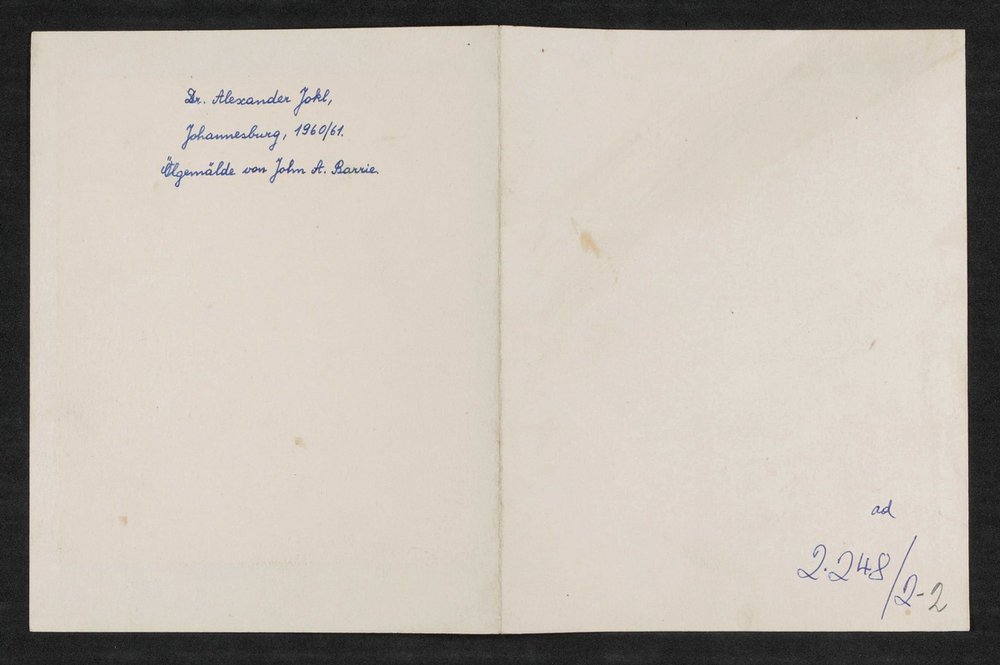 Dr. Alexander Jokl,
Johannesburg, 1960/61.
Ölgemälde von John A. Barrie.
ad
2.248/2-2